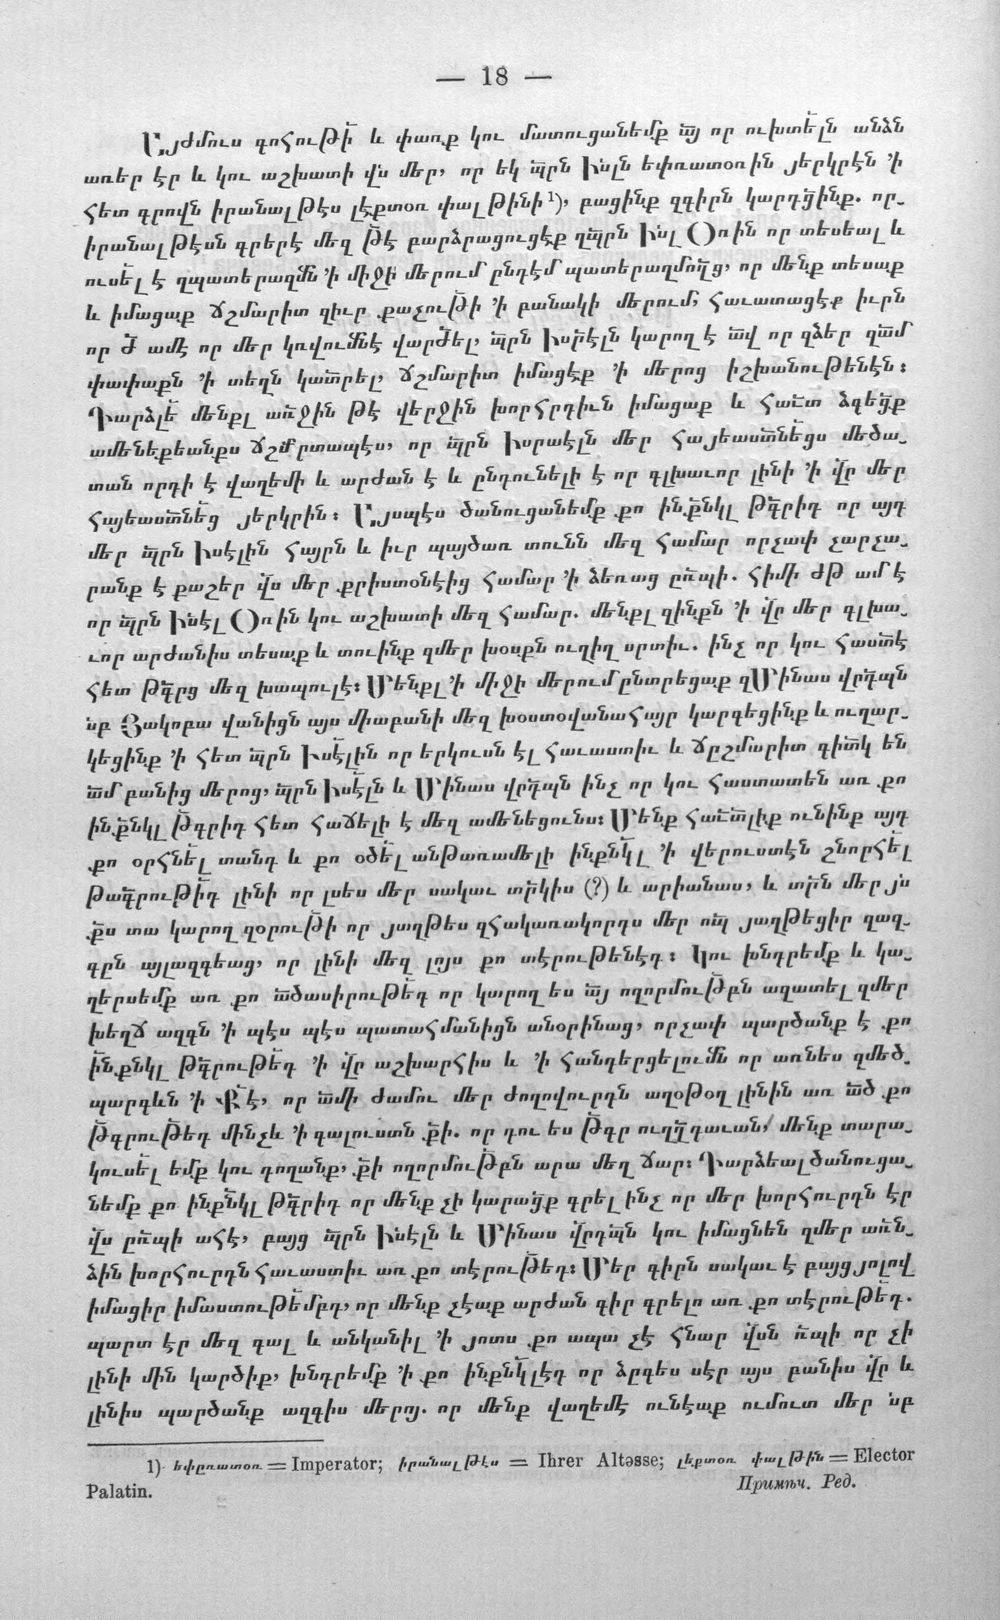 — 18 —
Այժմուս գոհութի՛ և փառք կու մատուցանեմք ա͠յ որ ուխտե՛լն անձն
առեր էր և կու աշխատի վ՛ս մեր, որ եկ պ͠րն Իս՛լն եփռատօռին յերկրէն ՚ի
հետ գրովն իրանալթէս լէքտօռ փալթինի ¹), բացինք զգիրն կարդ՛ցինք. որ֊
իրանալթէսն գրերէ մեզ թէ՛ բարձրացուցէք զպ͠րն Իս՛լ Օռին որ տեսեալ և
ուսե՛լ է զպատերազմ͠ն ՚ի միջի մերում ընդէմ պատերազմող͠ց, որ մենք տեսաք
և իմացաք ճշմարիտ զիւր քաչութ՛ի ՚ի բանակի մերում, հաւատացէք իւրն
որ Ժ ամէ որ մեր կռվում͠նէ վարժել, պ͠րն Իսր͠էլն կարող է ա͠վ որ զձեր զա͠մ
փափաքն ՚ի տեղն կատ͠րել, ճշմարիտ իմացէք ՚ի մերոց իշխանութենէն։
Դարձլե՛ մենքլ առ͠ջին թէ վերջին խորհրդիւն իմացաք և հաւ͠տ ձգե՛ցք
ամենեքեանքս ճշմ͠րտապէս, որ պ͠րն Իսրաէլն մեր հայեաստ͠նեցս մեծա֊
տան որդի է վաղեմի և արժան է և ընդունելի է որ գլխաւոր լինի ՚ի վ՛ր մեր
հայեաստ͠նեց յերկրին։ Այսպէս ծանուցանեմք քո ին͠քնկլ թգ͠րիդ որ այդ
մեր պ͠րն Իսէլին հայրն և իւր պայծառ տունն մեզ համար որչափ չարչա֊
րանք է քաշեր վ՛ս մեր քրիստօնէից համար ՚ի ձեռաց ըռ͠պի. հիմի ԺԹ ամ է
որ պ͠րն Իս՛էլ Օռին կու աշխատի մեզ համար. մենքլ զինքն ՚ի վ՛ր մեր գլխա֊
ւոր արժանիս տեսաք և տուինք զմեր խօսքն ուղիղ սրտիւ. ինչ որ կու հաստ͠է
հետ թգ͠րց մեզ խապուլէ։ Մենքլ ՚ի միջի մերում ընտրեցաք զՄինաս վրդ͠պն
ս՛բ Յակոբա վանիցն այս միաբանի մեզ խօստօվանահայր կարգեցինք և ուղար֊
կեցինք ՚ի հետ պ͠րն Իսե՛լին որ երկուսն էլ հաւաստիւ և ճըշմարիտ գիտ͠կ են
ա͠մ բանից մերոց, պ͠րն Իսէ՛լն և Մինաս վրդ͠պն ինչ որ կու հաստատեն առ քո
ին͠քնկլ թ͠գրիդ հետ հաճելի է մեզ ամենեցունս։ Մենք հաւ͠տլիք ունինք այդ
քո օրհնե՛լ տանդ և քո օծե՛լ անթառամելի ինքնկ՛լ ՚ի վերուստէն շնորհե՛լ
թագ͠րութի՛դ լինի որ լսես մեր սակաւ տր͠կիս (?) և արիանաս, և տր͠ն մեր յ՛ս
ք͠ս տա կարող զօրութ՛ի որ յաղթես զհակառակորդս մեր ոպ͠ յաղթեցիր զազ֊
գըն այլազգեաց, որ լինի մեզ լոյս քո տէրութենէդ։ Կու խնդրեմք և կա֊
ղերսեմք առ քո ած͠ասիրութե՛դ որ կարող ես ա͠յ ողորմութ՛բն ազատել զմեր
խեղճ ազգն ՚ի պէս պէս պատահմանիցն անօրինաց, որչափ պարծանք է քո
ի՛նքնկլ թգ͠րութե՛դ ՚ի վ՛ր աշխարհիս և ՚ի հանդերցելում͠ն որ առնես զմեծ֊
պարգևն ՚ի Ք՛է, որ ա͠մի ժամու մեր ժողովուրդն աղօթօղ լինին առ ա͠ծ քո
թ͠գրութե՛դ մինչև ՚ի գալուստն ք͠ի. որ դու ես թ͠գր ուղղ͠դաւան, մենք տարա֊
կուսե՛լ եմք կու դողանք, ք͠ի ողորմութ՛բն արա մեզ ճար։ Դարձեալ ծանուցա֊
նեմք քո ինք͠նկլ թգ͠րիդ որ մենք չի կարաց͠ք գրել ինչ որ մեր խորհուրդն էր
վ՛ս ըռ͠պի ահէ, բայց պ͠րն Իս՛էլն և Մինաս վ՛րդպ͠ն կու իմացնեն զմեր առ͠ն֊
ձին խորհուրդն հաւաստիւ առ քո տէրութ՛եդ։ Մեր գիրն սակաւ է բայց յոլով
իմացիր իմաստութե՛մբդ, որ մենք չէաք արժան գիր գրելո առ քո տէրութե՛դ.
պարտ էր մեզ գալ և անկանիլ ՚ի յոտս քո ապա չէ հնար վ՛սն ռ͠պի որ չի
լինի մին կարծիք, խնդրեմք ՚ի քո ինքնկ͠լէդ որ ձըդես սէր այս բանիս վ՛ր և
լինիս պարծանք ազգիս մերոյ. որ մենք վաղեմէ ունէաք ումուտ մեր ս՛բ
1) եփըռատօռ = Imperator; իրանալթէս = Ihrer Altəsse; լեքտօռ փալթին = Elector
Palatin.
Примѣч. Ред.